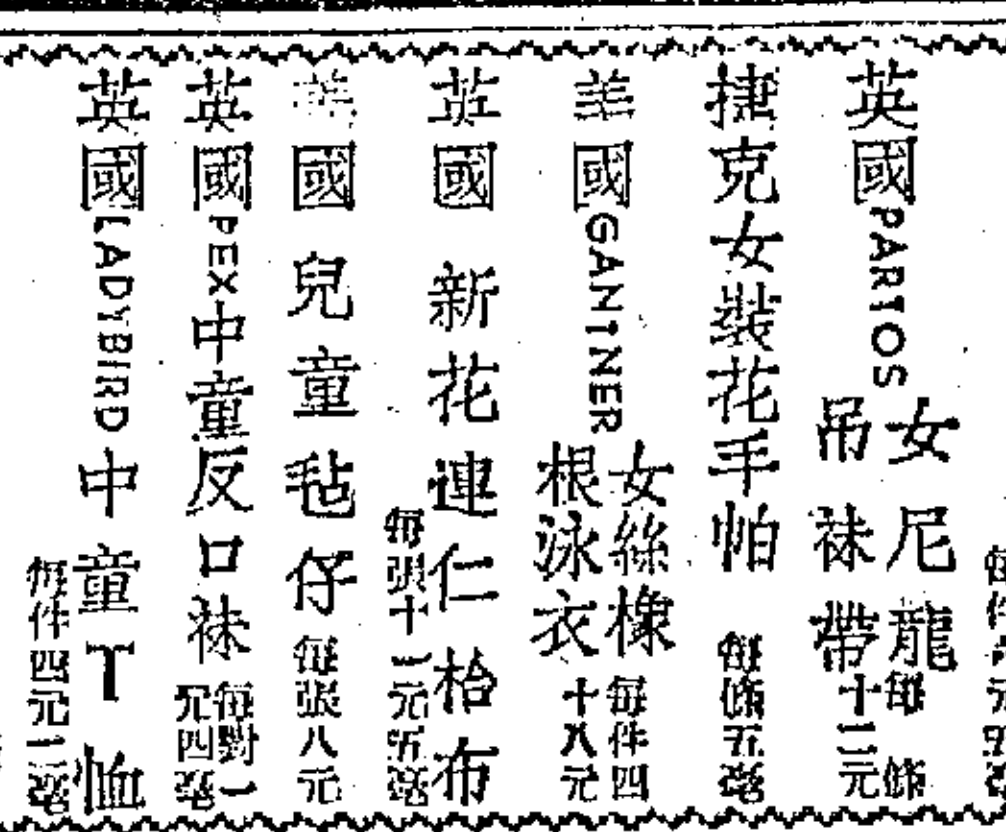 英國PARTOS女尼龍吊袜帶每條十二元
捷克女裝花手帕每條五毫
美國GANTNER女絲橡根泳衣每件四十八元
英國新花連仁枱布每張十一元五毫
美國兒童毡仔每張八元
英國PEX中童反口袜每對一元四毫
英國LADYBIRD中童T恤每件四元二毫